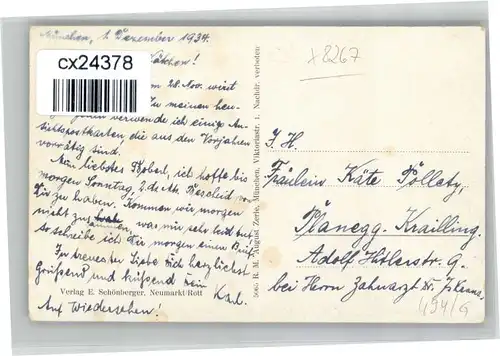 München, 1. Dezember 1934.
cx24378
28. Nov. wird
Zu meinen heu-
verwende, ich einige An-
sichtspostkarten die aus den Vorjahren
vorrätig sind.
Mein liebstes, ich hoffe bis
morgen Sonntag, 2. ds. Mts. Bescheid von
Dir zu haben. Kommen wir morgen
nicht zus, was mir sehr leid tut
so schreibe ich Dir morgen einen Brief.
In treuester Liebe Dich herzlichst
Grüßend und küssend Dein
Karl.
Auf Wiedersehen!
Verlag E. Schönberger, Neumarkt/Rott
August Zerle, München, Viktoriastr. 1. Nachdr. verboten
x8267
I. H.
Fräulein Käte
Planegg-Krailling.
Adolf Hitlerstr. 9.
bei Herrn Zahnarzt Dr.